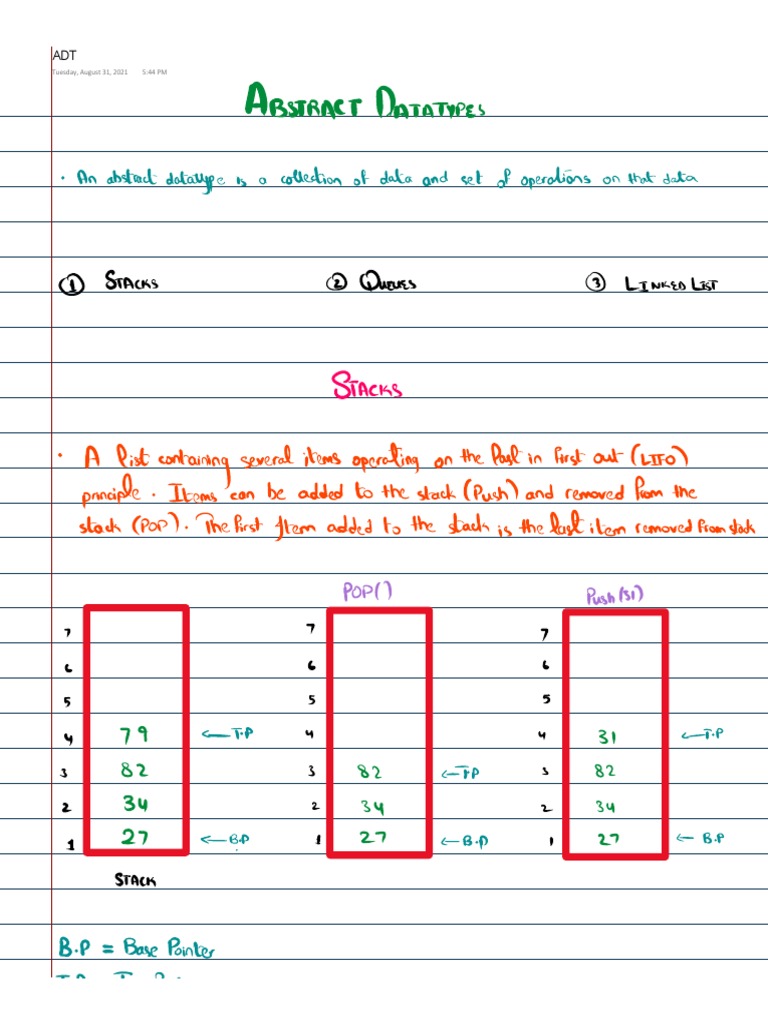 ADT
Tuesday, August 31, 2021 5:44 PM
ABSTRACT DATATYPES
· An abstract datatype is a collection of data and set of operations on that data
① STACKS ② QUEUES ③ LINKED LIST
STACKS
· A list containing several items operating on the last in first out (LIFO)
principle. Items can be added to the stack (Push) and removed from the
stack (POP). The first item added to the stack is the last item removed from stack
POP() Push(31)
7 7 7
6 6 6
5 5 5
4 79 ← T.P 4 4 31 ← T.P
3 82 3 82 ← T.P 3 82
2 34 2 34 2 34
1 27 ← B.P 1 27 ← B.P 1 27 ← B.P
STACK
B.P = Base Pointer